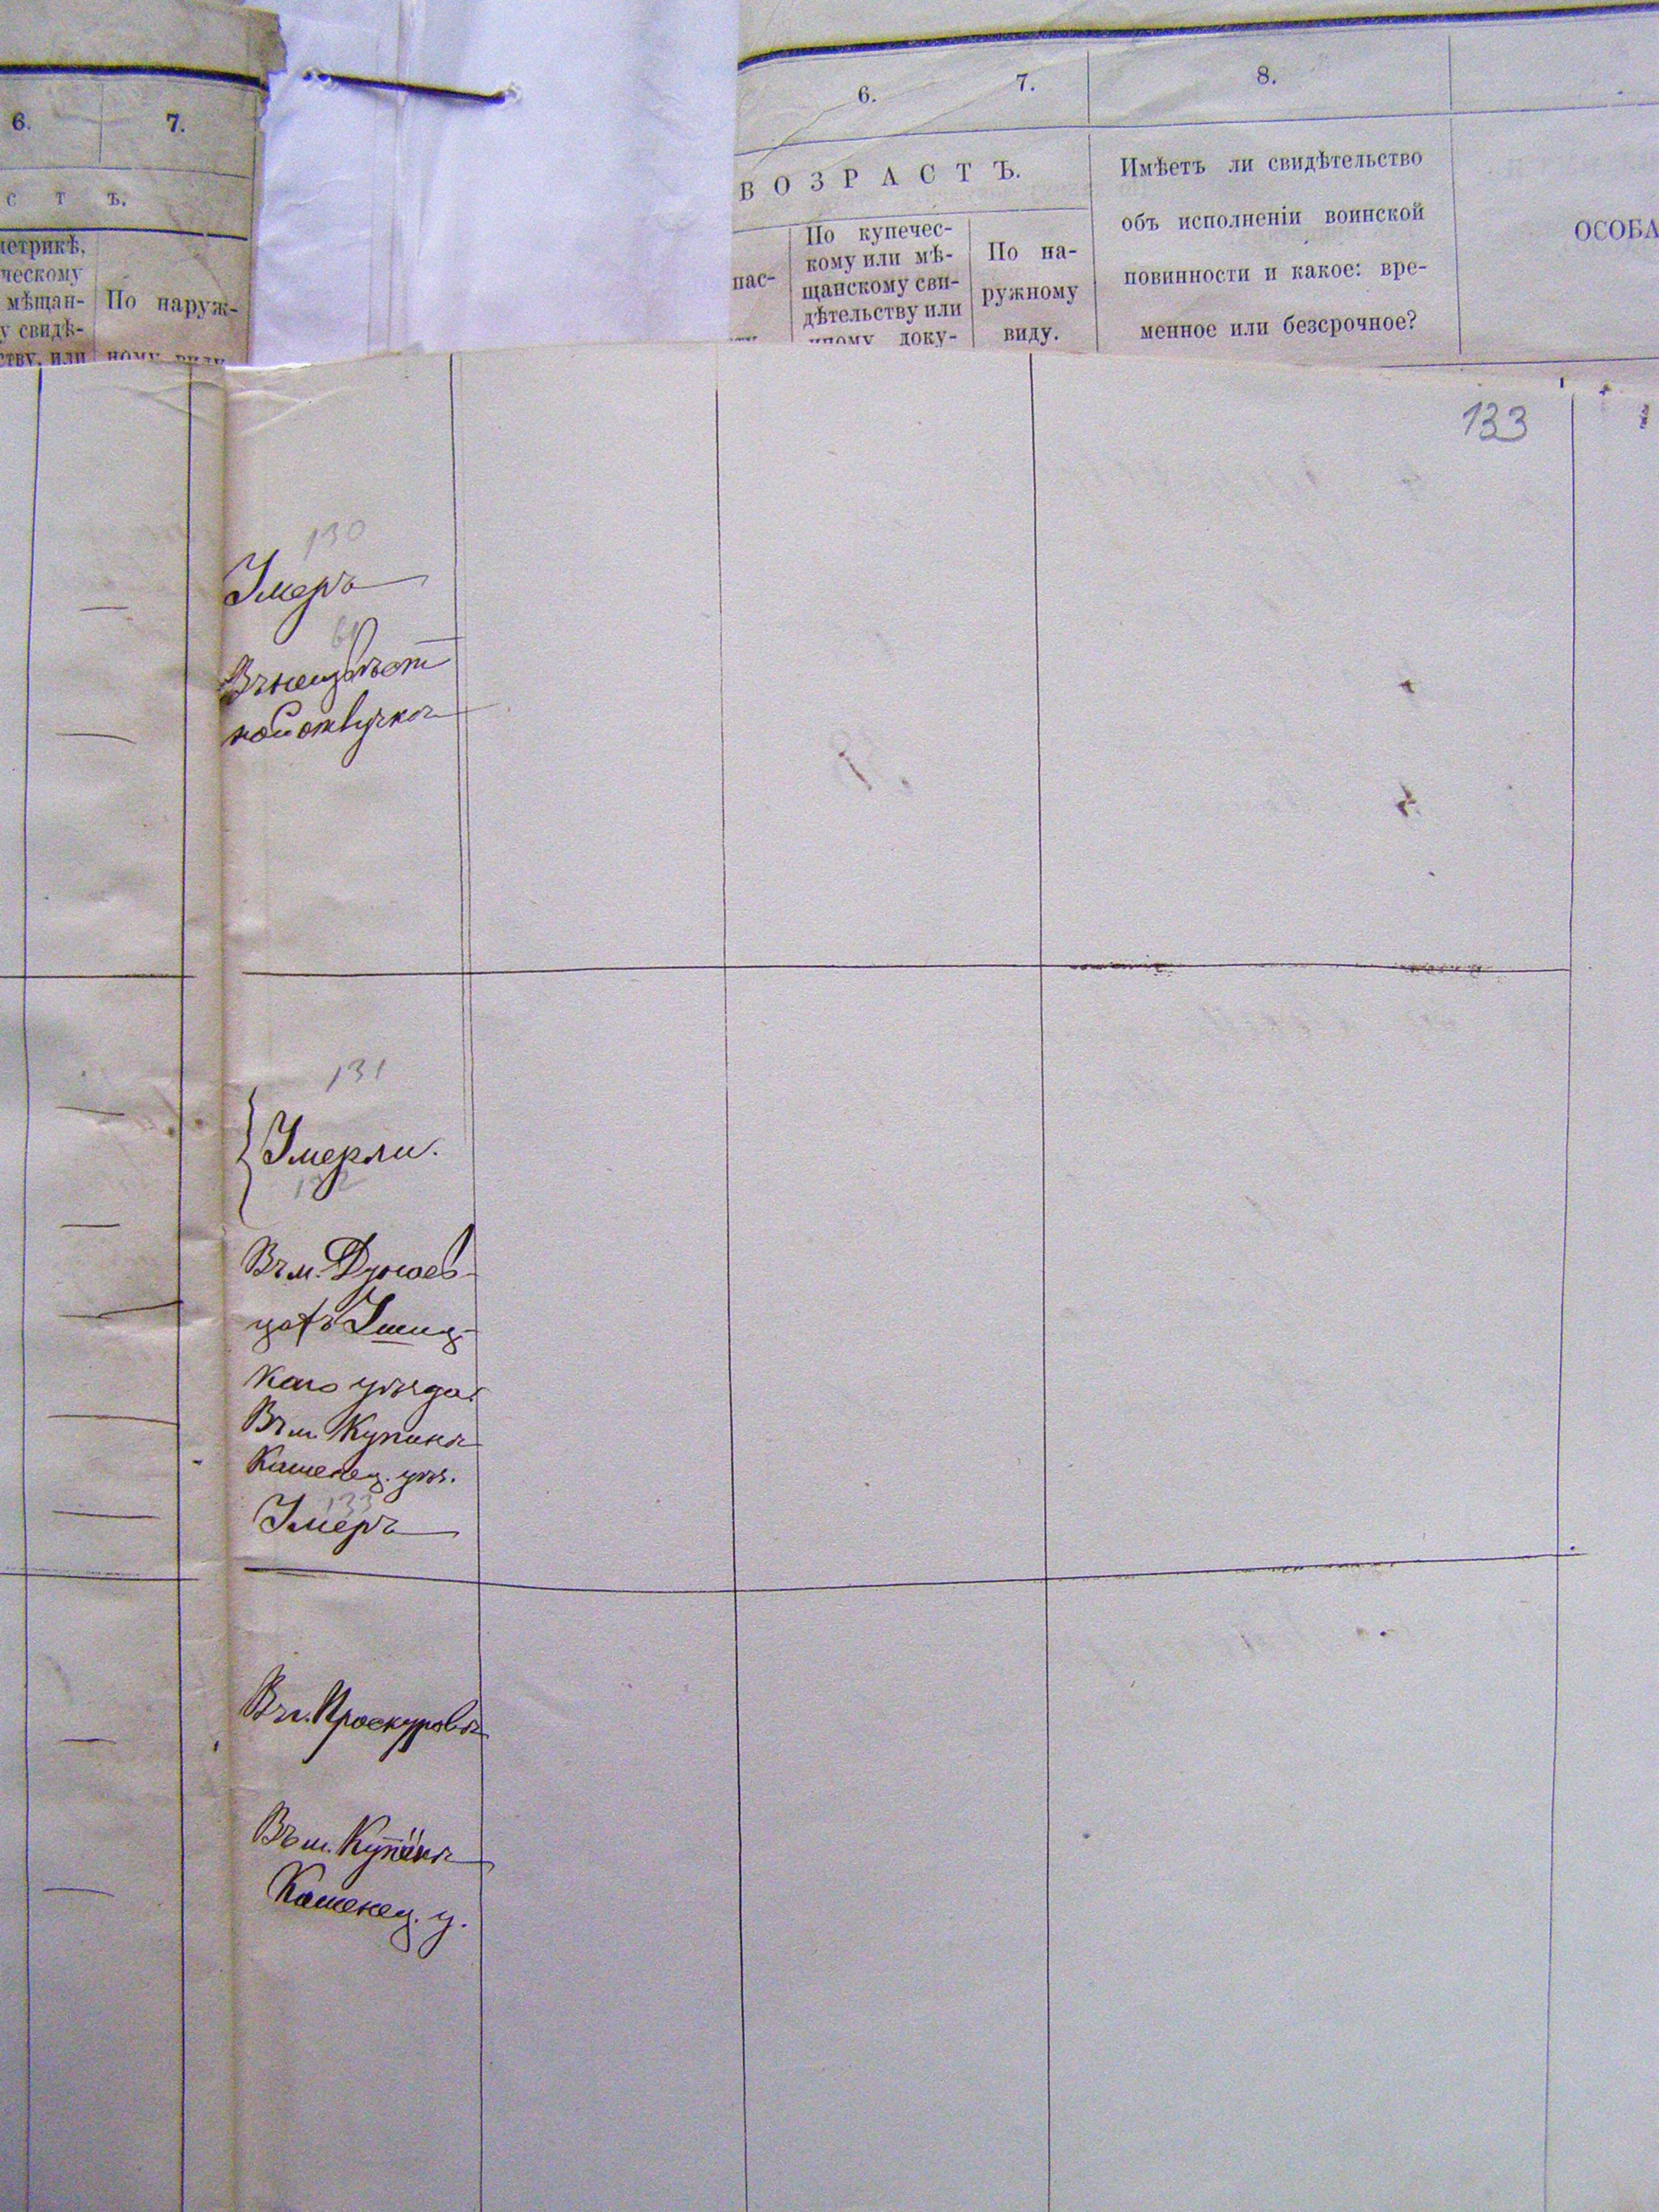 6.
7.
С Т Ъ.
метрикѣ,
ческому
мѣщан-
у свидѣ-
ству, или
По наруж-
ному виду
6.
7.
8.
ВОЗРАСТЪ.
пас-
По купечес-
кому или мѣ-
щанскому сви-
дѣтельству или
иному доку-
По на-
ружному
виду.
Имѣетъ ли свидѣтельство
объ исполненіи воинской
повинности и какое: вре-
менное или безсрочное?
ОСОБА
133
130
Умеръ
Въ неизвѣст
ной отлучкѣ
131
Умерли.
132
Въ м. Дунаев-
цахъ Ушиц-
каго уѣзда.
Въ м. Купинѣ
Каменец. уѣз.
133
Умеръ
Въ г. Проскуровѣ
Въ м. Купинѣ
Каменец. у.